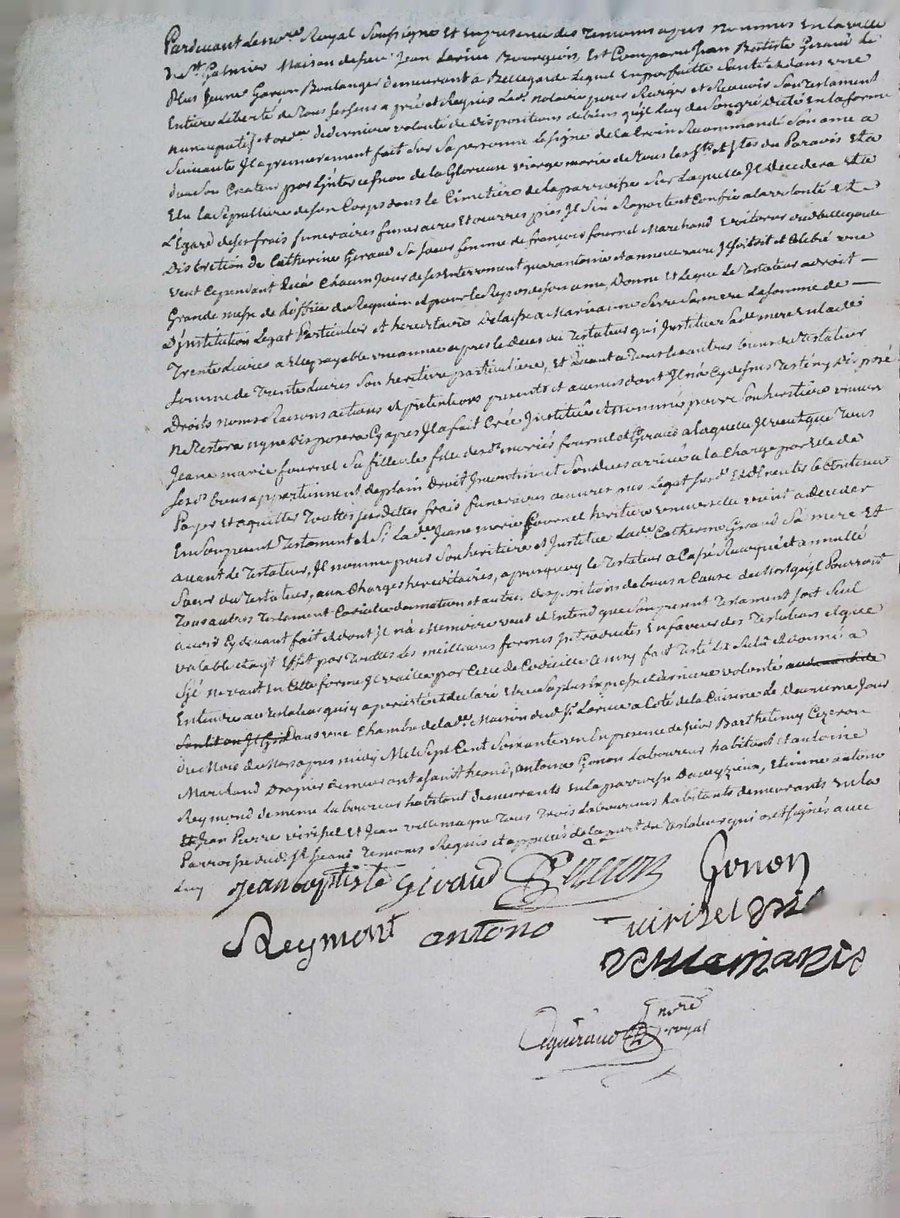 Pardevant Le no.re Royal Soussigné Et en presence des Temoins apres Nommes En la ville
de S.t Galmier Maison de Jean Larive Bourgeois, Est Comparu Jean Baptiste Giraud le
Plus Jeune Garçon Boulanger demeurant a Bellegarde Lequel En parfaitte Santé et dans une
Entiere Liberté de Tous ses sens a prié et Requis Led. Notaire pour Rediger et Recevoir Son Testament
nuncupatif et de derniere volonté de Dispositions de biens qu'il Luy a de Son gré dicté En la forme
Suivante Il a premierement fait Sur Sa personne Le signe de la Croix Recommandé Son ame a
Dieu Son Createur par L'intercession de la Glorieuse vierge marie de Tous les S.ts et S.tes du Paradis Et a
Elu la Sepulture de Son Corps dans le Cimetiere de la parroisse Sur Laquelle Il Decedera Et a
L'Egard de ses frais funeraires et œuvres pies Il S'en Raporte et Confie a la volonté Et
Discretion de Catherine Giraud Sa Sœur femme de francois fournel Marchand
veut Cependant que Chacun Jour de Ses Enterrement quarantaine et anniversaire Il Soit dit et Celebré une
Grande messe de Requiem et pour le Repos de Son ame Donne Et Legue Le Testateur a droit
D'institution Legat Particulier et hereditaire a Mariaine Serre Sa mere La Somme de
Trente Livres a Elle payable une année apres le Deces du Testateur qui Institue Sad. mere En lad.
Somme de Trente Livres Son heritiere particuliere, Et Quant a Tous Les autres biens du Testateur
Droits noms Raisons actions et pretentions presents et avenir dont Il n'a Cy dessus Testé ny Disposé
ne Testera ny ne Disposera Cy apres Il a fait Créé Institué et nommé pour Son heritiere univer
Jeanne marie fournel Sa filleule fille desd. mariés fournel et Giraud a laquelle Il veut que Tous
Sesd. biens appartiennent de plein Droit Incontinent Son deces arrivé a la Charge par Elle de
Payer et aquitter Touttes ses dettes frais funeraires œuvres pies Legat
En Son present Testament et Si lad. Jeanne marie fournel heritiere universelle vient a Deceder
avant Le Testateur, Il nomme pour Son heritiere et Institue lad. Catherine Giraud Sa mere Et
Sœur du Testateur, aux Charges hereditaires, a Cassé Revoqué et annullé
Tous autres Testament Codicile donnation et autres dispositions de biens a Cause de Mort qu'il Pourroit
avoir Cy devant fait et dont Il n'a Memoire veut et Entend que Son present Testament Soit Seul
valable et ayt Effet par Touttes Les meilleures formes Introduites En faveur des Testateurs et que
S'il ne vaut En Cette forme Il vaille par Celle de Codicille
Entendre au Testateur qui y a persisté et declaré Etre Sa derniere volonté
dans une Chambre de la Maison dud. S.r Larive a Coté de la Cuisine Le Deuxieme Jour
du Mois de Mars apres midy Mil Sept Cent Soixante En presence de Sieur Barthelemy Cizeron
Marchand demeurant antoine Gonon Laboureur habitant et antoine
Reymond de meme laboureur habitant demeurants En la parroisse Etienne antono
Et Jean Pierre virissel Et Jean villemagne Tous Trois Laboureurs habitants demeurants En la
Parroisse dud. S.t Temoins Requis et appellés de la part du Testateur qui ont Signés avec
Luy
Jean baptiste Giraud Cizeron Gonon
Reymont antono virissel
villemagne
no.re
Royal